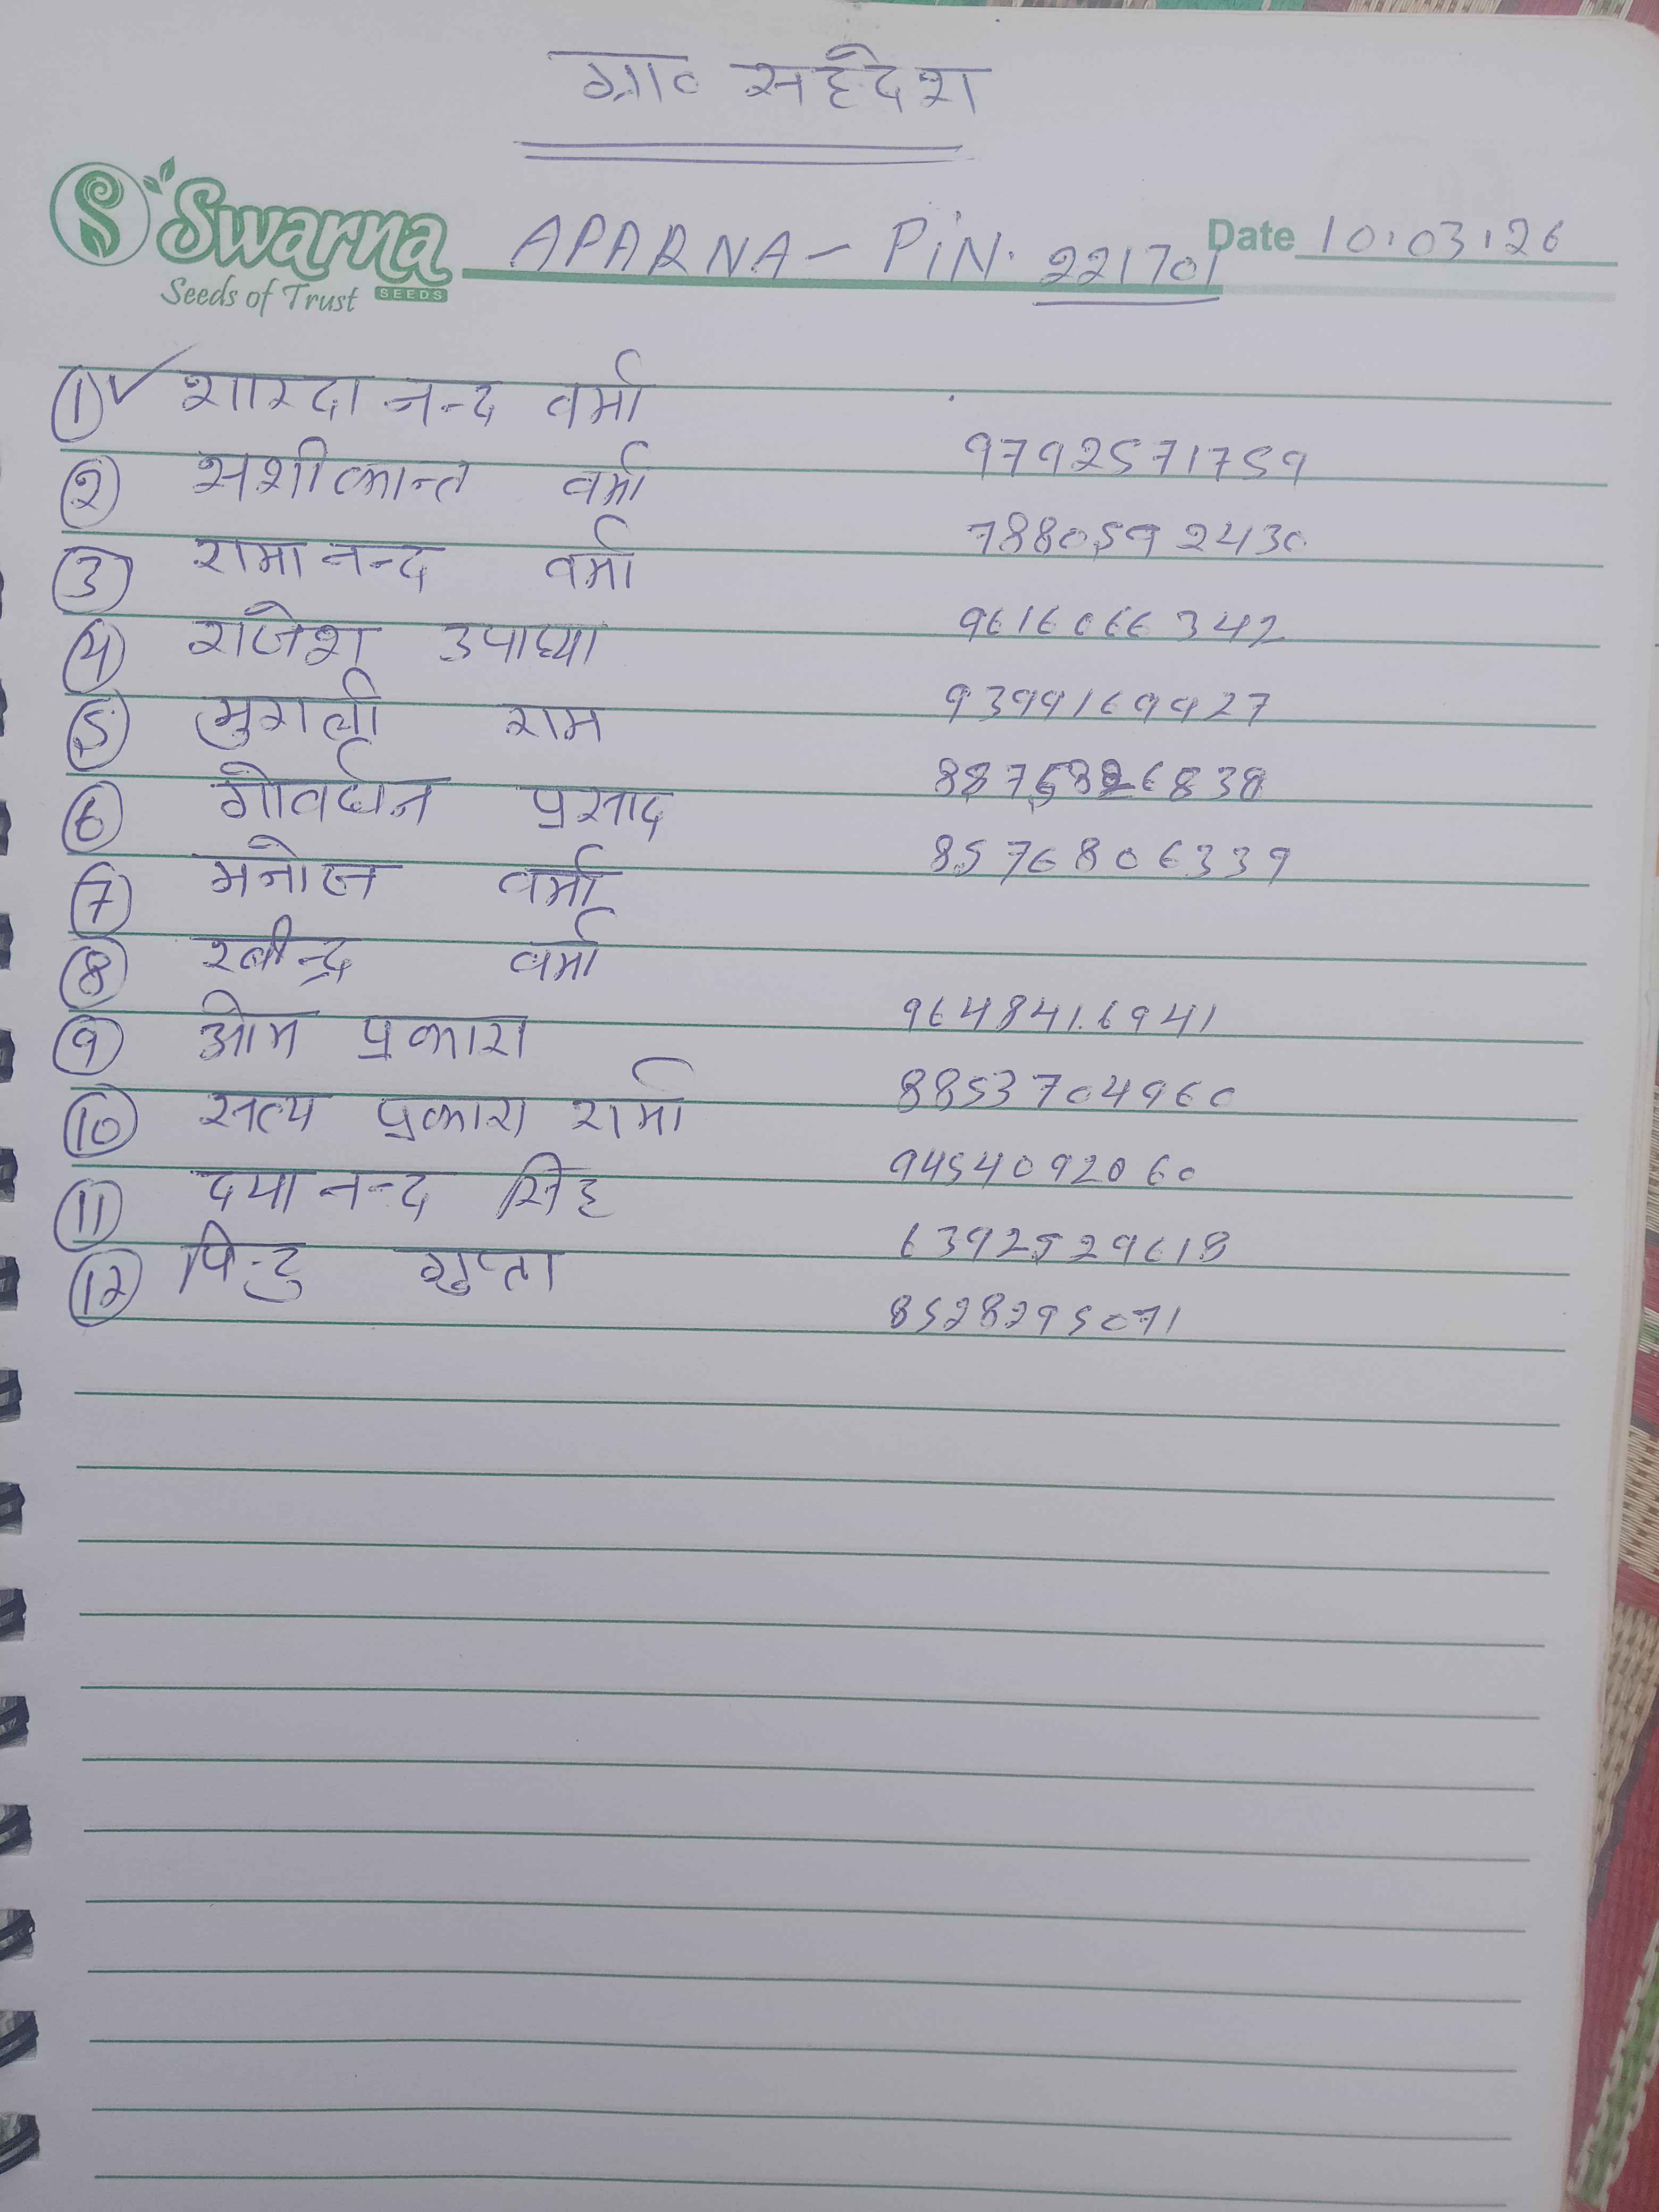 ग्रा० सहदेश
Swarna
Seeds of Trust SEEDS
APARNA - PiN. 221701 Date 10.03.26
① ✓ शारदा नन्द वर्मा
② सशीकान्त वर्मा 9792571759
③ रामा नन्द वर्मा 7880592430
④ राजेश उपाध्या 9616066342
⑤ मुराली राम 9399169927
⑥ गोवर्धन प्रसाद 8876826838
⑦ मनोज वर्मा 8576806339
⑧ रबीन्द्र वर्मा
⑨ ओम प्रकाश 9648416941
⑩ सत्य प्रकाश शर्मा 8853704960
⑪ दया नन्द सिंह 9454092060
⑫ पिन्टु गुप्ता 6392529618
8528295071